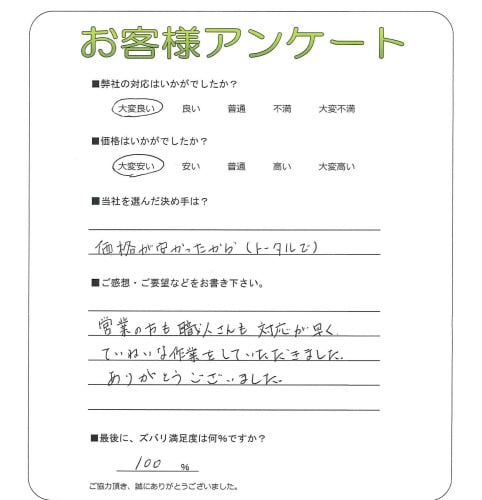 お客様アンケート
■弊社の対応はいかがでしたか？
大変良い 良い 普通 不満 大変不満
■価格はいかがでしたか？
大変安い 安い 普通 高い 大変高い
■当社を選んだ決め手は？
価格が安かったから（トータルで）
■ご感想・ご要望などをお書き下さい。
営業の方も職人さんも対応が早く
ていねいな作業をしていただきました。
ありがとうございました。
■最後に、ズバリ満足度は何%ですか？
100 %
ご協力頂き、誠にありがとうございました。